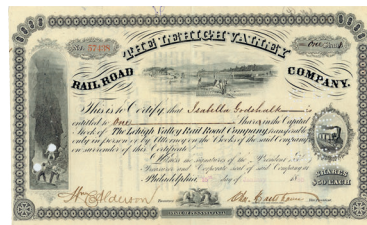 No. 57498
One Share
THE LEHIGH VALLEY
RAIL ROAD COMPANY.
This is to Certify, that Isabella Godshalk is
entitled to One Share in the Capital
Stock of The Lehigh Valley Rail Road Company, transferable
only in person or by Attorney on the Books of the said Company
on surrender of this Certificate.
Witness the signatures of the President
Treasurer and Corporate seal of said Company at
Philadelphia, day of 18
SHARES
$50 EACH
Treasurer
President